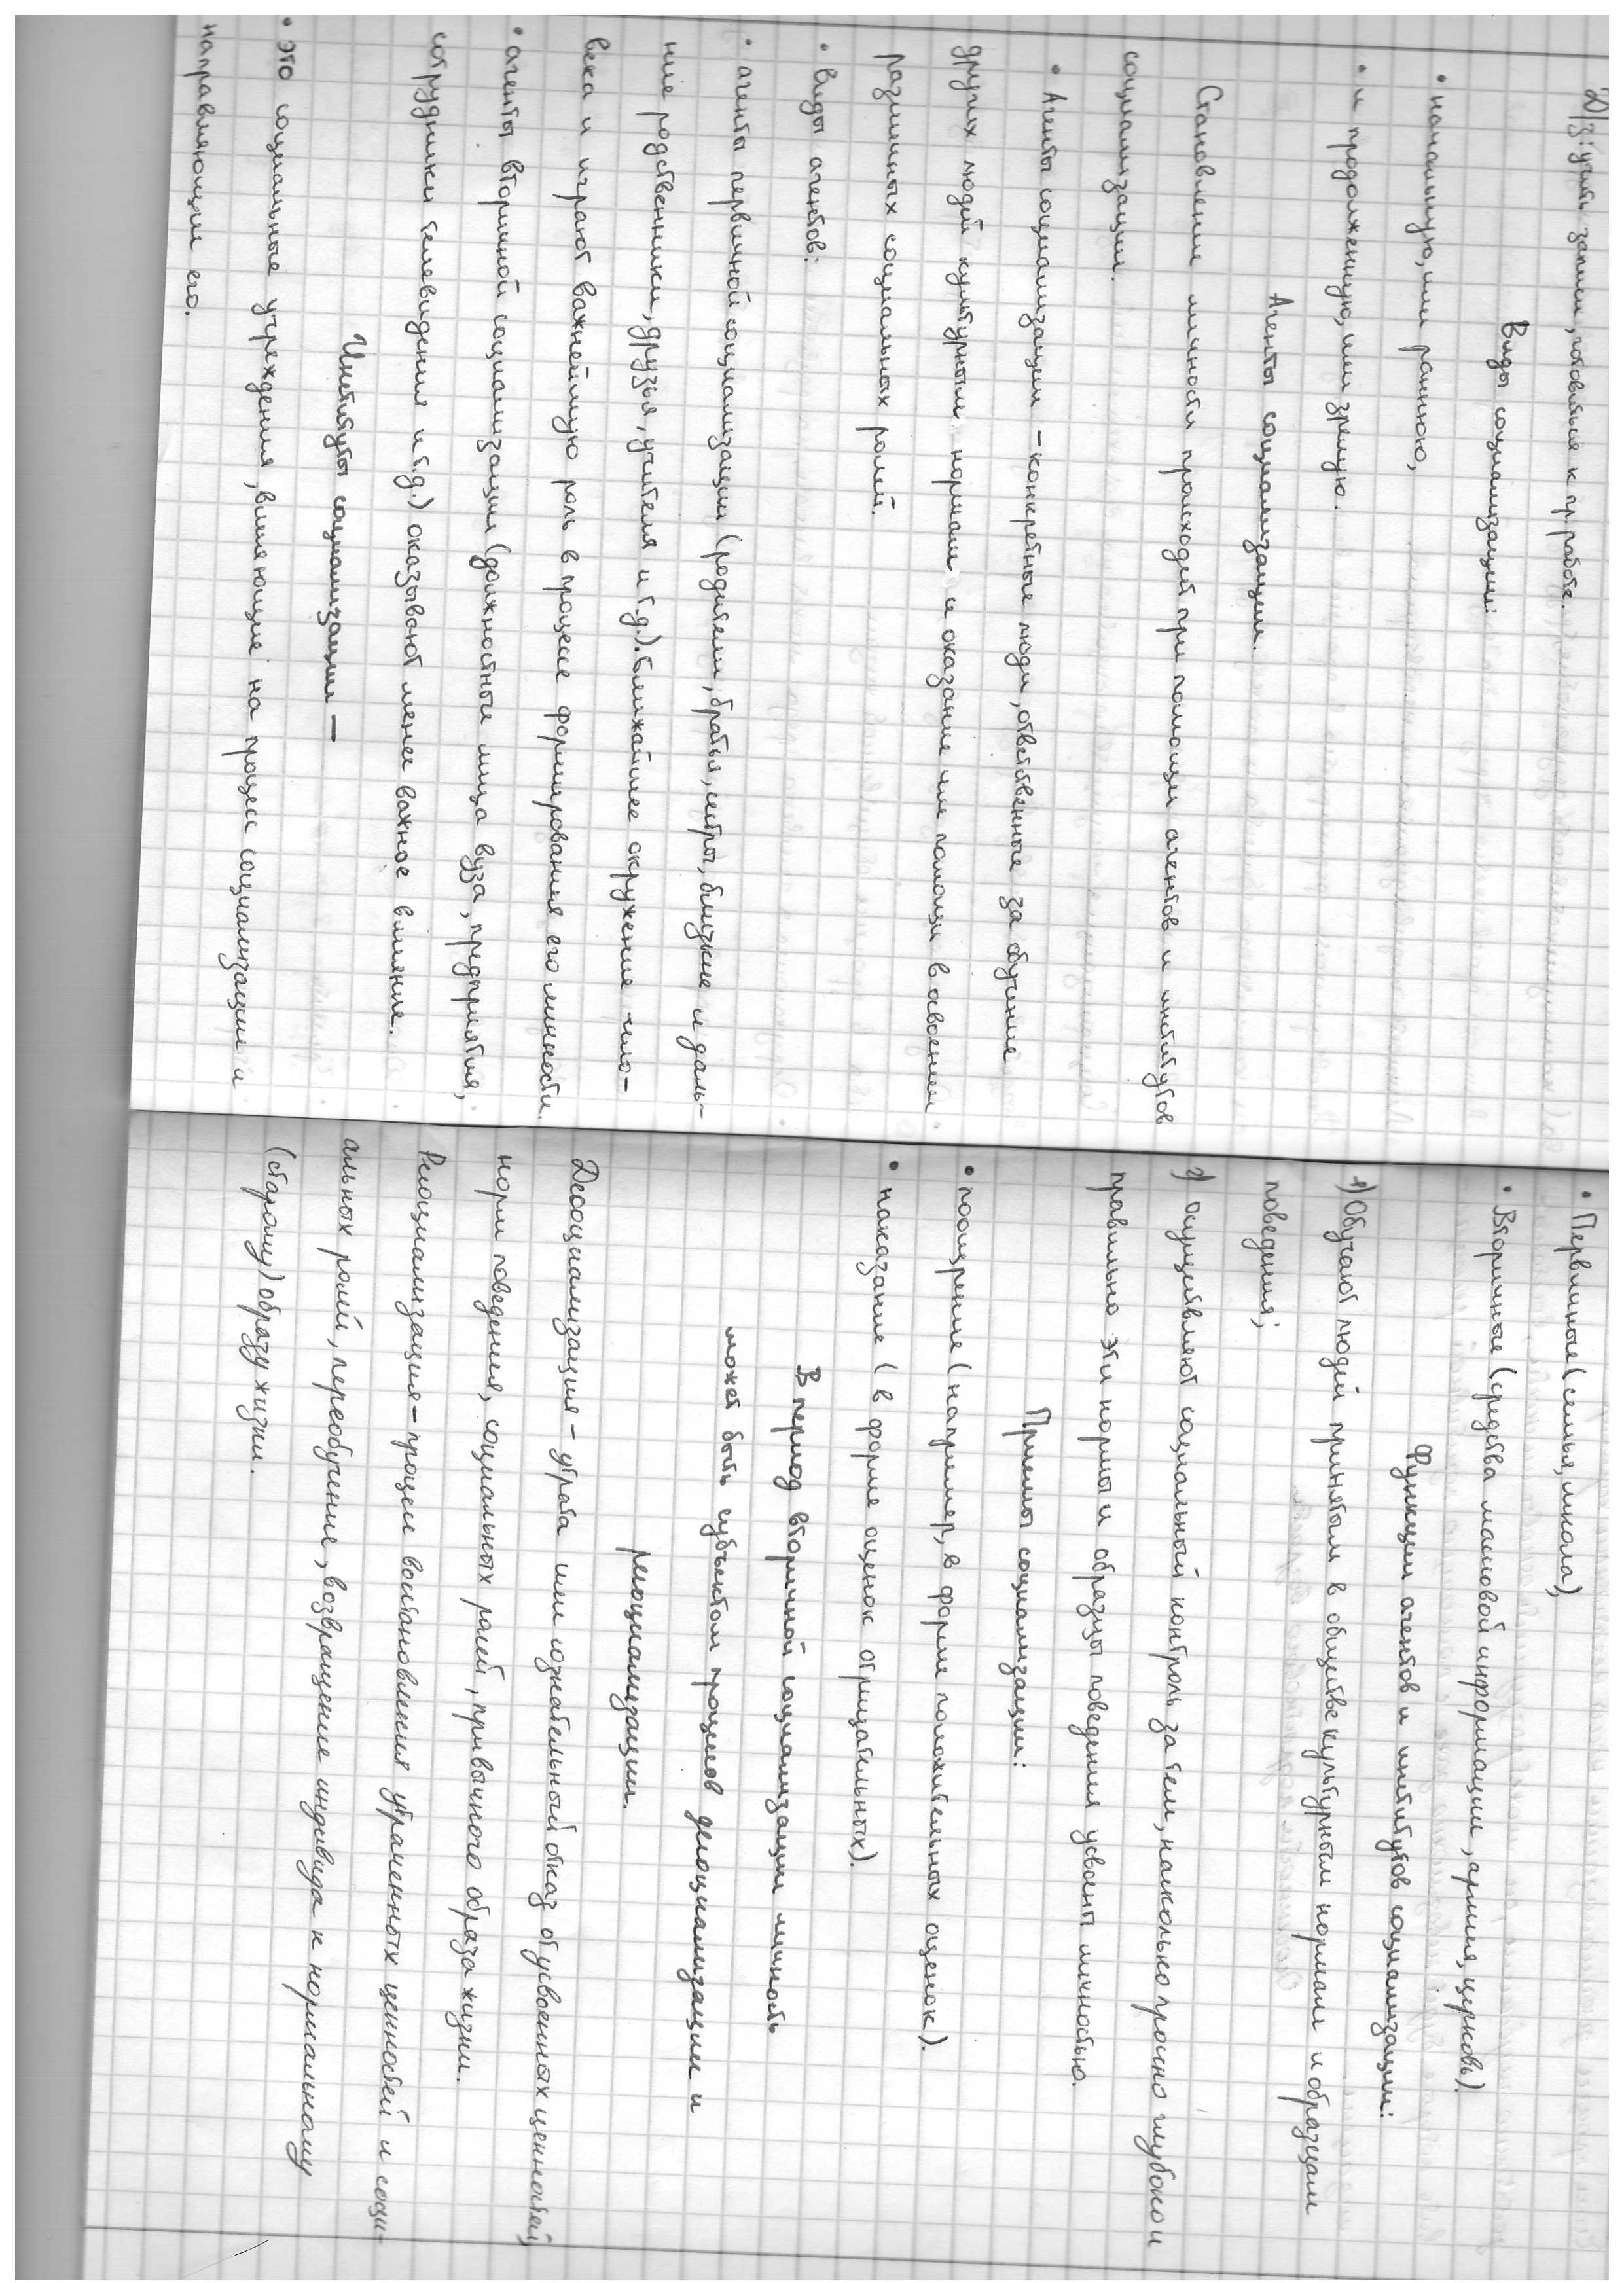 Д/з: учить записи, готовиться к пр. работе.
Виды социализации:
• начальную, или раннюю,
• и продолженную, или зрелую.
Агенты социализации.
Становление личности происходит при помощи агентов и институтов
социализации.
• Агенты социализации – конкретные люди, ответственные за обучение
других людей культурным нормам и оказание им помощи в освоении
различных социальных ролей.
• Виды агентов:
• агенты первичной социализации (родители, братья, сестры, близкие и даль-
ние родственники, друзья, учителя и т.д.). Ближайшее окружение чело-
века и играют важнейшую роль в процессе формирования его личности.
• агенты вторичной социализации (должностные лица вуза, предприятия,
сотрудники телевидения и т.д.) оказывают менее важное влияние.
Институты социализации –
• это социальные учреждения, влияющие на процесс социализации и
направляющие его.
• Первичные (семья, школа),
• Вторичные (средства массовой информации, армия, церковь).
Функции агентов и институтов социализации:
1) Обучают людей принятым в обществе культурным нормам и образцам
поведения;
2) осуществляют социальный контроль за тем, насколько прочно глубоко и
правильно эти нормы и образцы поведения усвоены личностью.
Приемы социализации:
• поощрение (например, в форме положительных оценок).
• наказание (в форме оценок отрицательных).
В период вторичной социализации личность
может быть субъектом процессов десоциализации и
ресоциализации.
Десоциализация – утрата или сознательный отказ от усвоенных ценностей,
норм поведения, социальных ролей, привычного образа жизни.
Ресоциализация – процесс восстановления утраченных ценностей и соци-
альных ролей, переобучение, возвращение индивида к нормальному
(старому) образу жизни.